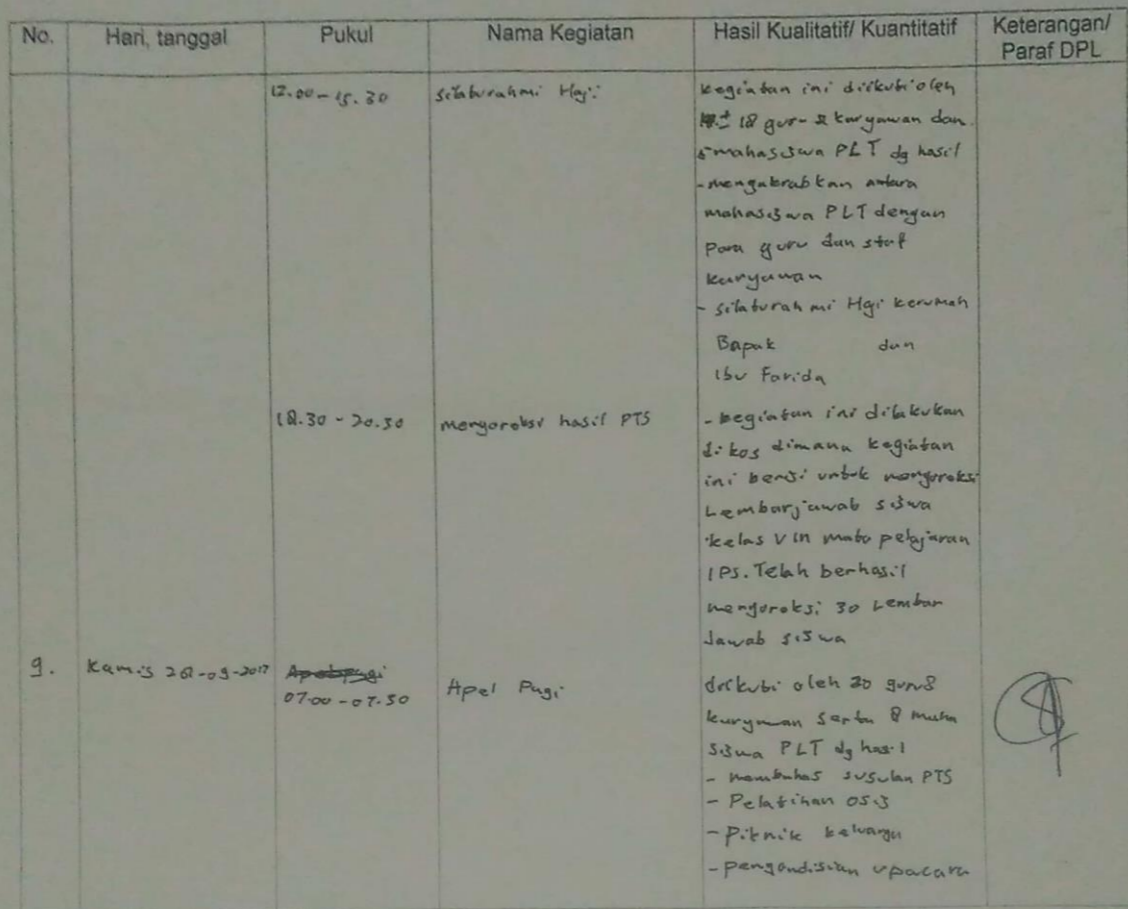 No. Hari, tanggal Pukul Nama Kegiatan Hasil Kualitatif/ Kuantitatif Keterangan/
Paraf DPL
12.00 - 15.30 silaturahmi Haji kegiatan ini diikuti oleh
± 18 guru & karyawan dan
5 mahasiswa PLT dg hasil
- mengakrabkan antara
mahasiswa PLT dengan
Para guru dan staf
karyawan
- silaturahmi Haji kerumah
Bapak dan
Ibu Farida
18.30 - 20.30 mengoreksi hasil PTS - kegiatan ini dilakukan
di kos dimana kegiatan
ini berisi untuk mengoreksi
Lembar jawab siswa
kelas VIII mata pelajaran
IPS. Telah berhasil
mengoreksi 30 Lembar
Jawab siswa
9. Kamis -09-2017
07.00 - 07.30 Apel Pagi diikuti oleh 20 guru &
karyawan serta 8 maha
siswa PLT dg hasil
- membahas susulan PTS
- Pelatihan osis
- Piknik keluarga
- pengondisian upacara